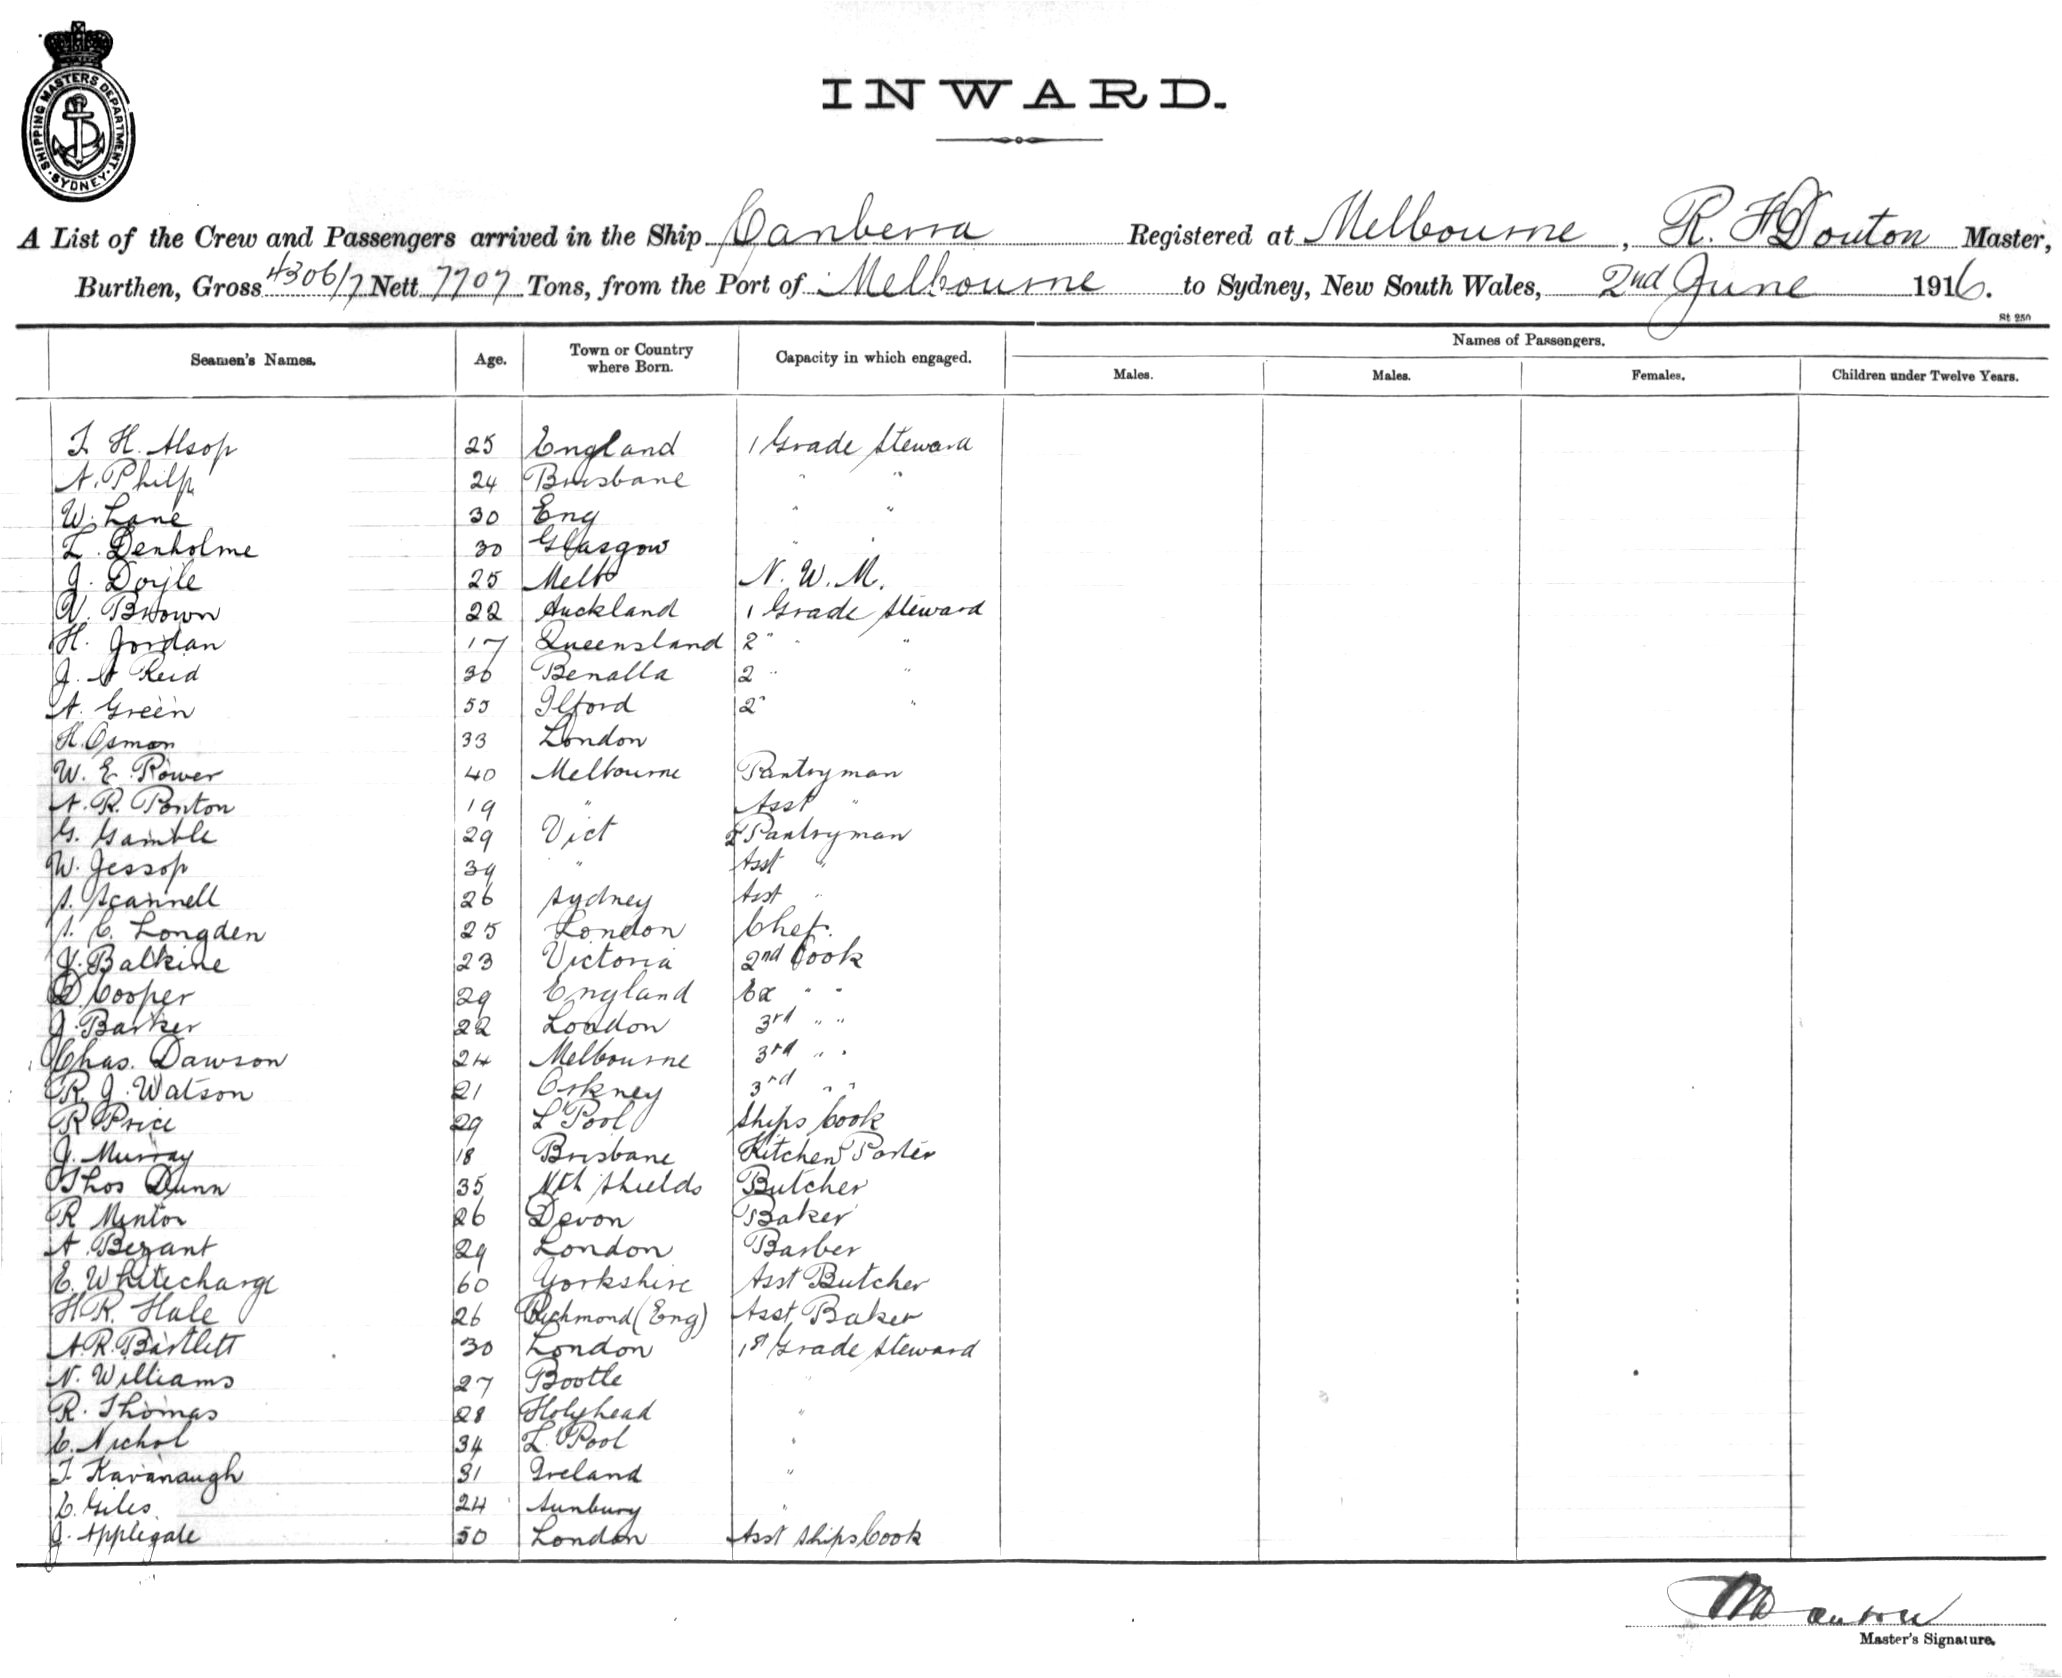 SHIPPING MASTERS DEPARTMENT · SYDNEY ·
INWARD.
A List of the Crew and Passengers arrived in the Ship Canberra Registered at Melbourne, R. H Douton Master,
Burthen, Gross 4306/7 Nett 7707 Tons, from the Port of Melbourne to Sydney, New South Wales, 2nd June 1916.
St 250
Seamen's Names. Age. Town or Country where Born. Capacity in which engaged. Names of Passengers.
Males. Males. Females. Children under Twelve Years.
H. Alsop 25 England 1 Grade Steward
A. Philp 24 Brisbane " "
W. Lane 30 Eng " "
L. Denholme 30 Glasgow " "
J. Doyle 25 Melb N. W. M.
Brown 22 Auckland 1 Grade Steward
H. Jordan 17 Queensland 2 " " "
J. A Reid 30 Benalla 2 " "
A. Green 55 Ilford 2 " "
H. Osmon 33 London
W. E. Rower 40 Melbourne Pantryman
A. R. Ponton 19 " Asst "
G. Gamble 29 Vict 2 Pantryman
W. Jessop 39 " Asst "
S. Scannell 26 Sydney Asst "
S. C. Longden 25 London Chef.
Balkine 23 Victoria 2nd Cook
D. Cooper 29 England Ex " "
J. Barker 22 London 3rd " "
Chas. Dawson 24 Melbourne 3rd " "
R. J. Watson 21 Orkney 3rd " "
R Price 29 L'Pool Ships Cook
J. Murray 18 Brisbane Kitchen Porter
Thos Dunn 35 Nth Shields Butcher
R Mintor 26 Devon Baker
A. Bezant 29 London Barber
E. Whitecharge 60 Yorkshire Asst Butcher
H. R. Hale 26 Richmond (Eng) Asst Baker
A. R. Bartlett 30 London 1st Grade Steward
N. Williams 27 Bootle "
R. Thomas 28 Holyhead "
C. Nichol 34 L. Pool "
T. Kavanaugh 31 Ireland "
C. Giles. 24 Sunbury "
J. Applegate 50 London Asst Ships Cook
Master's Signature.